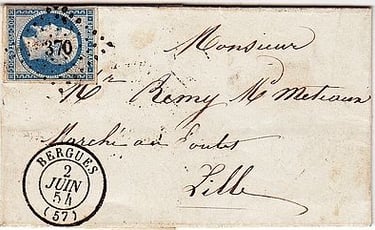 370
Monsieur
Mr Remy Md Meteaux
Marché au Poulet
Lille
BERGUES
2
JUIN
54
(57)